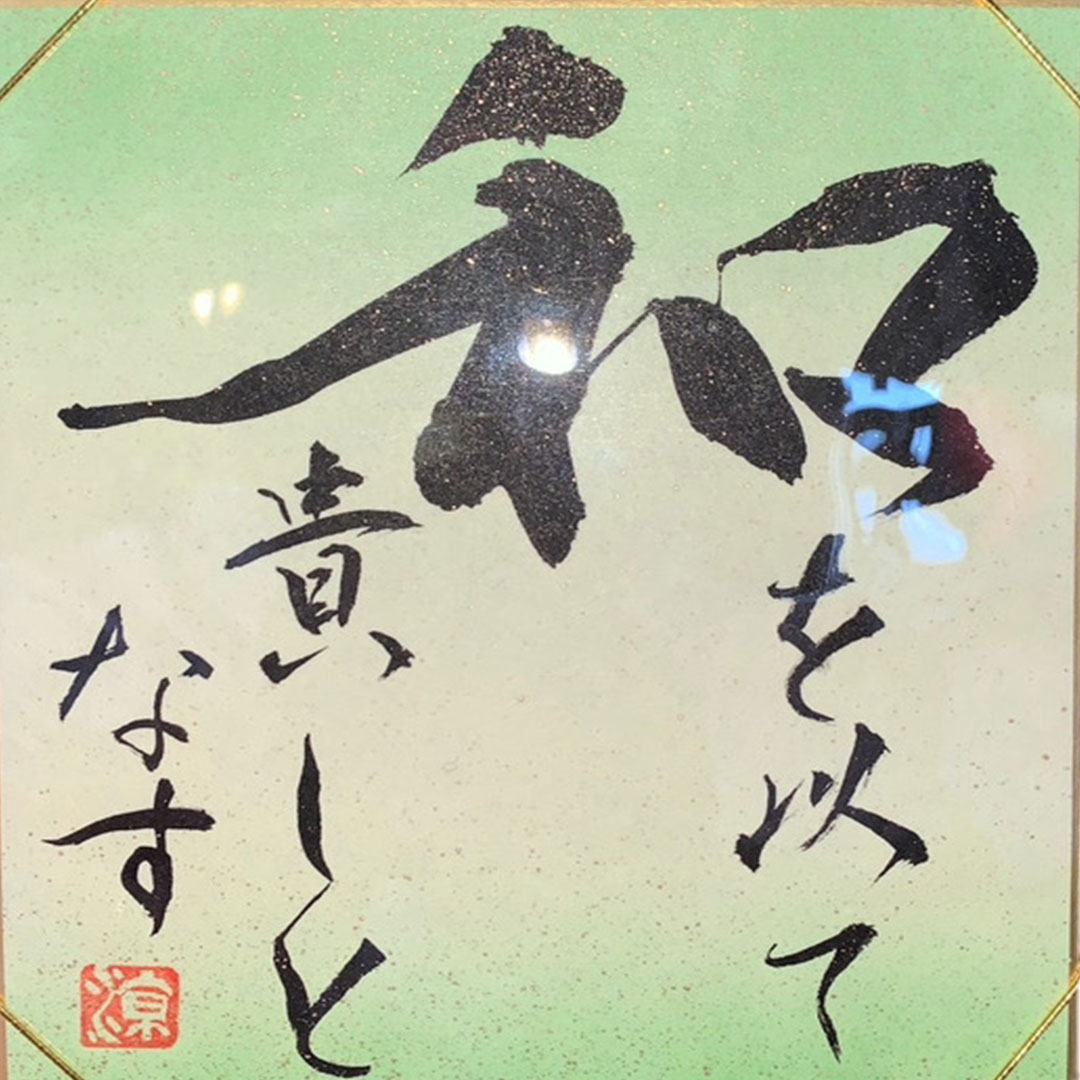 和を以て
貴しと
なす
涼